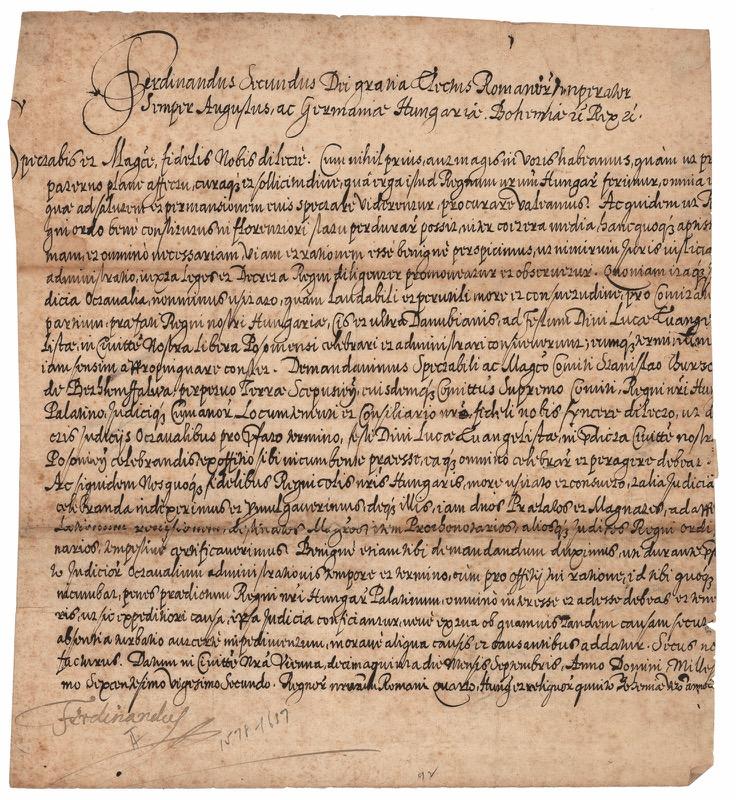 Ferdinandus Secundus Dei gratia Electus Romanor̃ Imperator
Semper Augustus, ac Germaniæ Hungariæ Bohemiæ &c Rex &c.
Spectabilis et Magce, fidelis nobis dilecte. Cum nihil prius, aut magis in votis habeamus, quàm ut pr
paterno planè affectu, curaq₃ et sollicitudine, quâ erga istud Regnum nr̃um Hungar̃ ferimur, omnia
quæ ad salutem et permansionem eius spectare viderentur, procurare valeamus. Ac quidem ut
gni ordo bene constitutus in florentiori statu perdurare possit, inter coetera media, hancquoq₃ aptiss
mam, et omninò necessariam viam et rationem esse benignè perspicimus, ut nimirum Iuris iusticiæ
administratio, iuxta leges et Decreta Regni diligenter promoveatur et observetur. Quoniam itaq₃
dicia Octavalia, non minus usitato, quàm laudabili et perutili more et consuetudine, pro Comitat
partium præfati Regni nostri Hungariæ, Cis et ultra Danubianis, ad Festum Divi Lucæ Evange
listæ, in Civitte Nostra Libera Posoniensi celebrari et administrari consueverunt, eumq₃ terminum
iam sensim appropinquare constet. Demandavimus Spectabili ac Magco Comiti Stanislao Thurzo
de Bethlemffalwa perpetuo Terræ Scepusien̄, eiusdemq₃ Comittus Supremo Comiti, Regni nr̃i Hun
Palatino, Judiciq₃ Cumanor̃ Locumtenenti et Consiliario nr̃o fideli nobis syncerè dilecto, ut d
ctis Judicijs Octavalibus pro p̄fato termino, festi Divi Lucæ Evangelistæ, in p̄dicta Civitte nostra
Posonien̄ celebrandis ex offitio sibi incumbente præesse, eaq₃ omnino celebrare et peragere debeat.
Ac siquidem Nos quoq₃ fidelibus Regnicolis nr̃is Hungaris, more usitato et consueto, talia Judicia
celebranda indixerimus et p̄mulgaverimus, deq₃ illis, iam duos Prælatos et Magnates, ad
destinatos Magros item Prothonotarios, aliosq₃ Juditos Regni ordi
narios, tempestivè certificaverimus. Benignè etiam tibi demandandum duximus, ut durante p̄
to Judicior̃ Octavalium administrationis tempore et termino, cùm pro offitij tui ratione, id tibi quoq₃
incumbat, penes prædictum Regni nr̃i Hungar̃ Palatinum, omnino interesse et adesse debeas et tene
ris, ut sic expeditiori causæ, ipsa Judicia conficiantur, neve ex tua ob quamvis tandem causam secut
absentia turbatio aut certè impedimentum, moravè aliqua causis et causantibus addatur. Secus no
facturus. Datum in Civitte Nr̃a Vienna, decimaquinta die Mensis Septembris, Anno Domini, Mille
mo Sexcentesimo Vigesimo Secundo. Regnor̃ nr̃orum Romani quarto, Hung̃ et reliquor̃ quinto, Bohemiæ vero anno
Ferdinandus
II
1578-1637
92